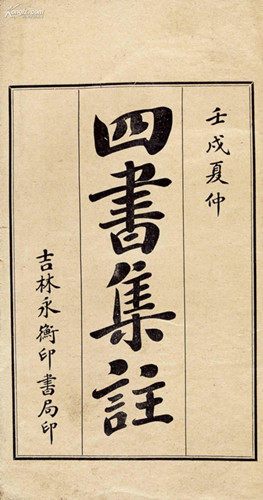 壬戌夏仲
四書集註
吉林永衡印書局印